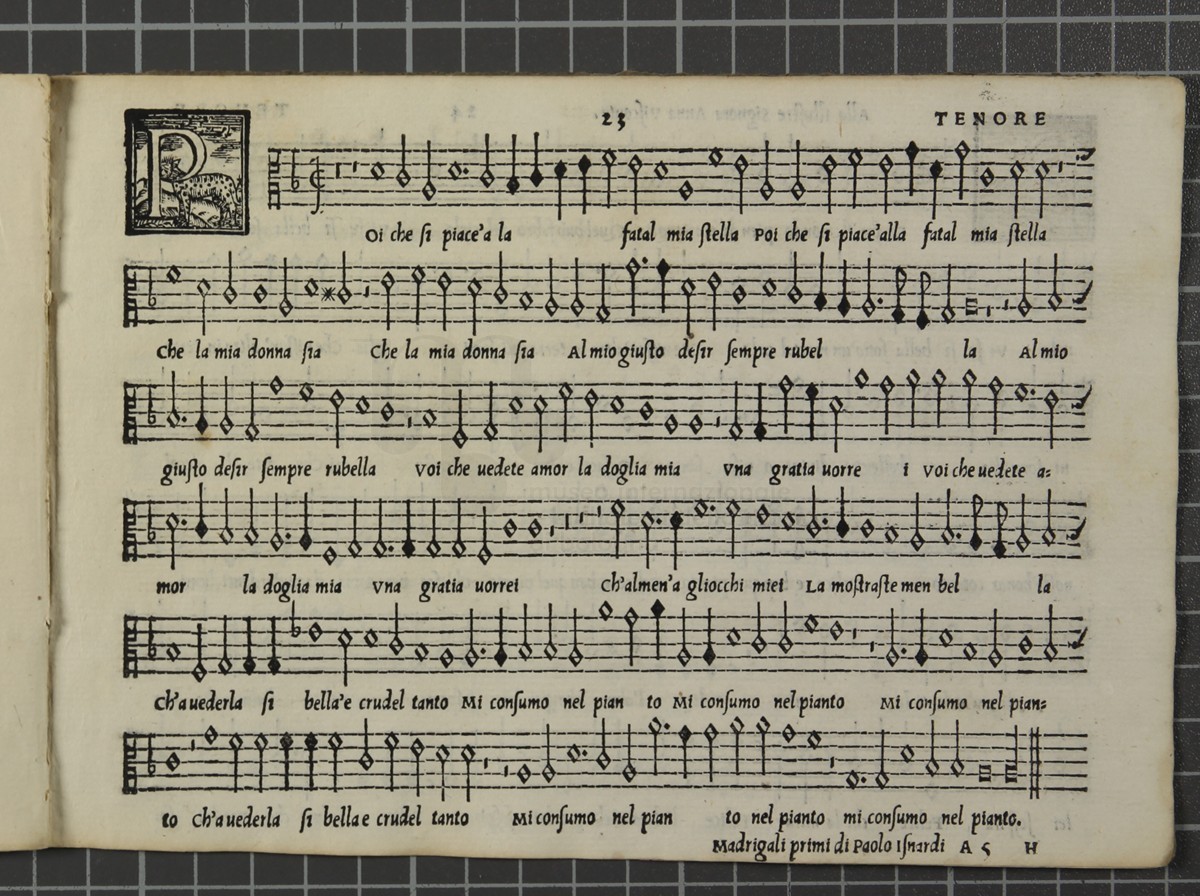 23 TENORE
POi che ſi piace'a la fatal mia ſtella Poi che ſi piace'alla fatal mia ſtella
Che la mia donna ſia Che la mia donna ſia Al mio giuſto deſir ſempre rubel la Al mio
giuſto deſir ſempre rubella Voi che uedete amor la doglia mia Vna gratia uorre i Voi che uedete a=
mor la doglia mia Vna gratia uorrei Ch'almen'a gliocchi miei La moſtraſte men bel la
Ch'a uederla ſi bella'e crudel tanto Mi conſumo nel pian to Mi conſumo nel pianto Mi conſumo nel pian=
to Ch'a uederla ſi bella e crudel tanto Mi conſumo nel pian to nel pianto mi conſumo nel pianto.
Madrigali primi di Paolo Iſnardi A 5 H